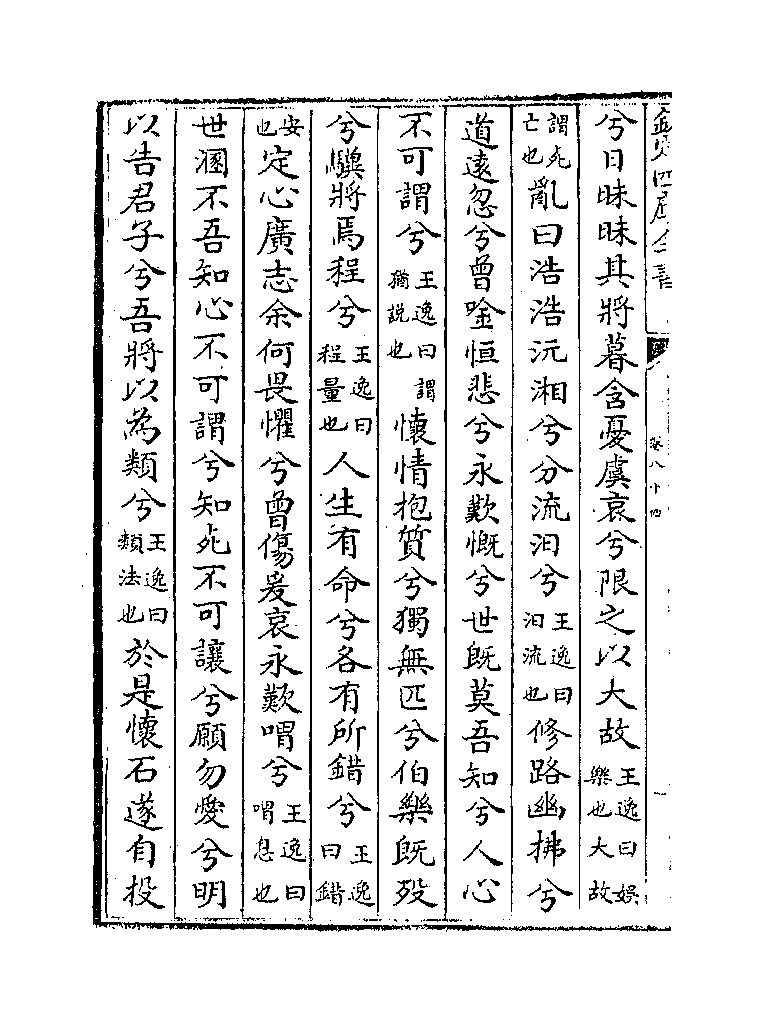 欽定四庫全書
卷八十四
兮日昧昧其將暮含憂虞哀兮限之以大故王逸曰娯樂也大故
謂死亡也亂曰浩浩沅湘兮分流汨兮王逸曰汨流也修路幽拂兮
道逺忽兮曾唫恒悲兮永歎慨兮世既莫吾知兮人心
不可謂兮王逸曰謂猶説也懷情抱質兮獨無匹兮伯樂既殁
兮驥將焉程兮王逸曰程量也人生有命兮各有所錯兮王逸曰錯
安也定心廣志余何畏懼兮曾傷爰哀永歎喟兮王逸曰喟息也
世溷不吾知心不可謂兮知死不可讓兮願勿愛兮明
以告君子兮吾將以為類兮王逸曰類法也於是懷石遂自投